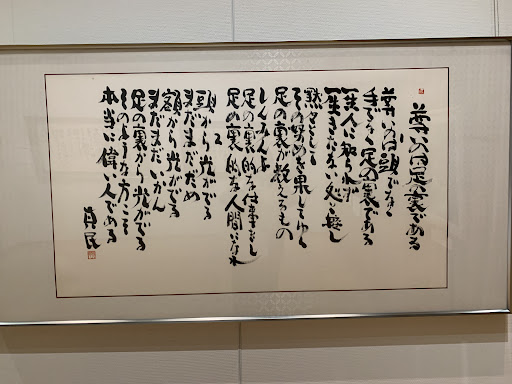 尊いのは足の裏である
尊いのは頭でなく
手でなく足の裏である
一生人に知られず
一生きたない処と接し
黙々として
その努めを果してゆく
足の裏が教えるもの
しんみんよ
足の裏的な仕事をし
足の裏的な人間になれ
2
頭から光がでる
まだまだだめ
額から光がでる
まだまだいかん
足の裏から光がでる
そのような方こそ
本当に偉い人である
真民